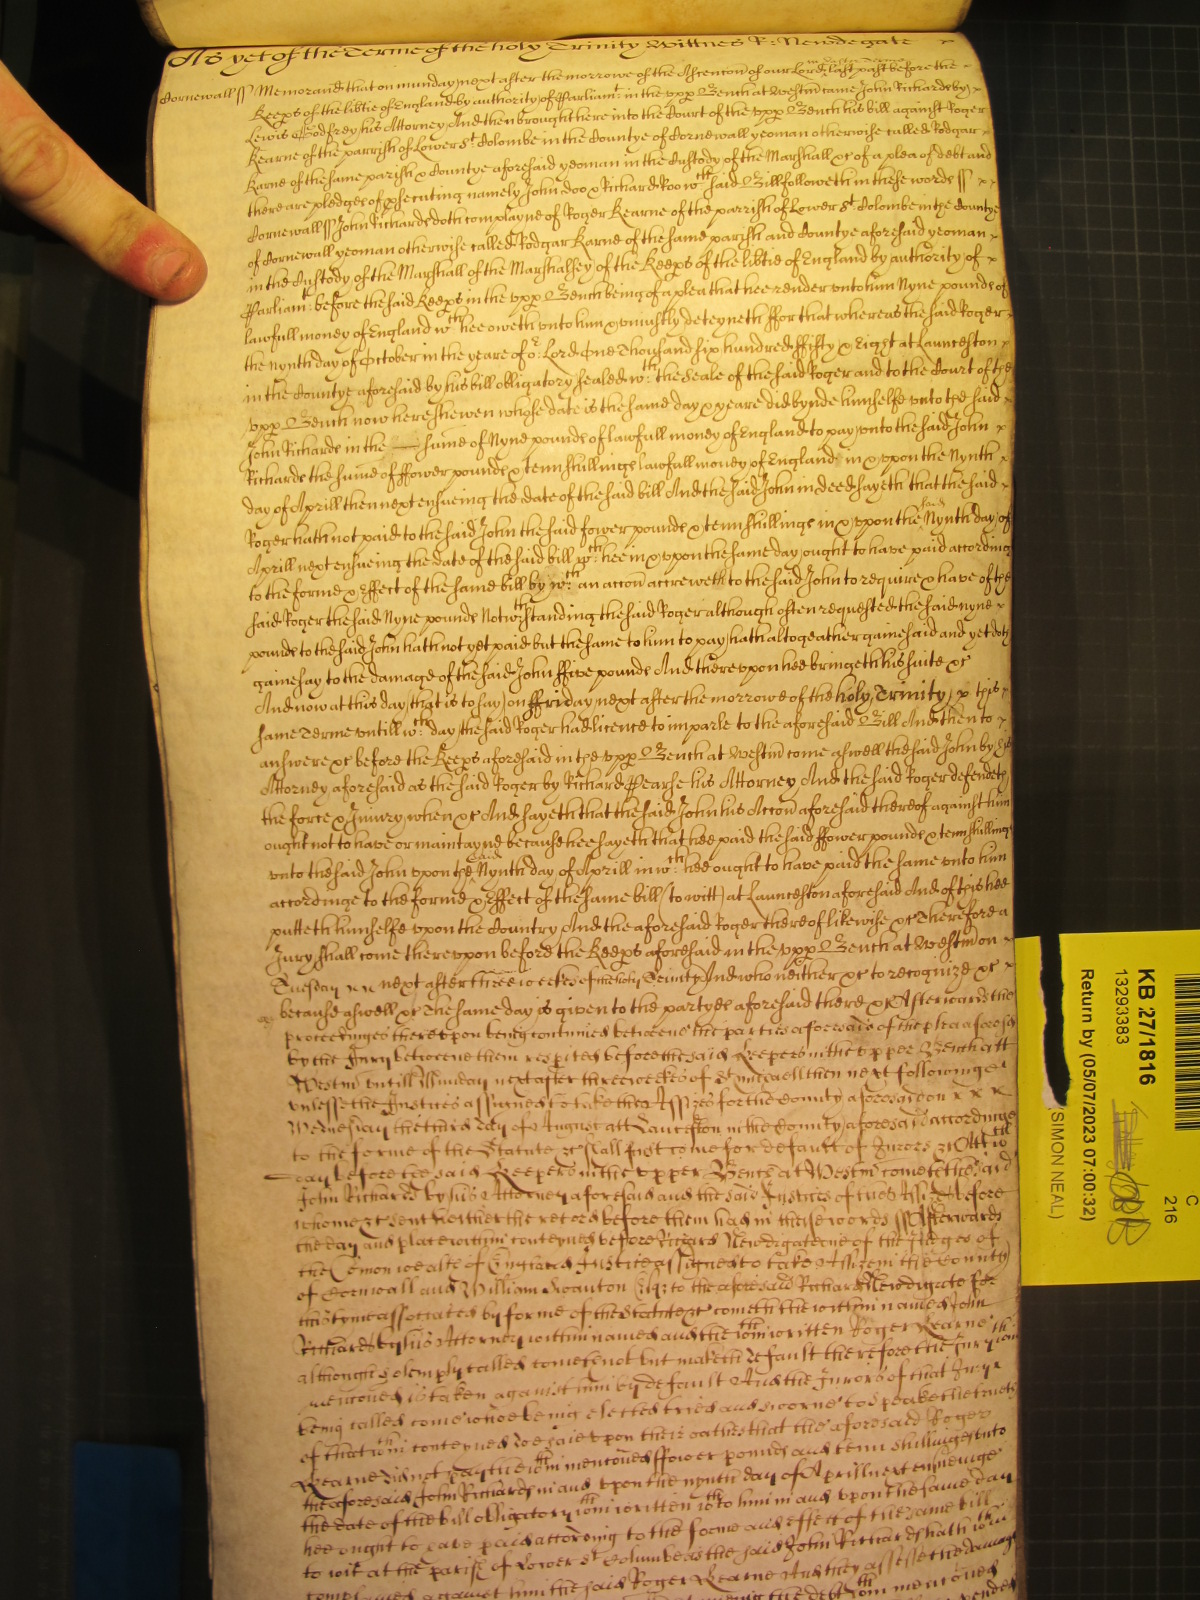 As yet of the Terme of the holy Trinity Wittnes R: Newdegate
Cornewall ss Memorand that on munday next after the morrowe of the Ascencon of our Lord last past before the
Keeps of the libtie of England by authority of Parliamt: in the upp Bench at Westm came John Richards by
Lewis Godfrey his Attorney And then brought here into the Court of the upp Bench his bill against Roger
Kearne of the parrish of Lower St Colombe in the Countye of Cornewall yeoman otherwise called Rodgar
Karne of the same parish & Countye aforesaid yeoman in the Custody of the Marshall &c of a plea of debt and
there are pledges of prosecuting namely John doo & Richard Roo wth said Bill followeth in these words ss
Cornewall ss John Richards doth complayne of Roger Kearne of the parrish of Lower St Colombe in the Countye
of Cornewall yeoman otherwise called Rodgar Karne of the same parish and Countye aforesaid yeoman
in the Custody of the Marshall of the Marshalsey of the Keeps of the libtie of England by authority of
Parliamt: before the said Keeps in the upp Bench being of a plea that hee render unto him Nyne pounds of
lawfull money of England wth hee oweth unto him & uniustly deteyneth ffor that whereas the said Roger
the Nynth day of October in the yeare of or Lord One Thousand six hundred ffifty & Eight at Launceston
in the Countye aforesaid by his bill obligatory sealed wth the seale of the said Roger and to the Court of the
upp Bench now here shewen whose date is the same day & yeare did bynde himselfe unto the said
John Richards in the sume of Nyne pounds of lawfull money of England to pay unto the said John
Richards the sume of ffower pounds & tenn shillings lawfull money of England in & upon the Nynth
day of Aprill then next ensueing the date of the said bill And the said John in deed sayeth that the said
Roger hath not paid to the said John the said fower pounds & tenn shillings in & upon the said Nynth day of
Aprill next ensueing the date of the said bill wth hee in & upon the same day ought to have paid according
to the forme & effect of the same bill by wth an accon accreweth to the said John to require & have of the
said Roger the said Nyne pounds Notwthstanding the said Roger although often requested the said nyne
pounds to the said John hath not yet paid but the same to him to pay hath altogeather gainesaid and yet doth
gainesay to the damage of the said John ffive pounds And thereupon hee bringeth his suite &c
And now at this day that is to say on ffriday next after the morrowe of the holy Trinity & this
same Terme untill wth day the said Roger had licence to imparle to the aforesaid Bill And then to
answere &c before the Keeps aforesaid in the upp Bench at Westm come aswell the said John by his
Attorney aforesaid as the said Roger by Richard Pearse his Attorney And the said Roger defendeth
the force & Iniury when &c And sayeth that the said John his Accon aforesaid thereof against him
ought not to have or maintayne because hee sayeth that hee paid the said ffower pounds & tenn shillings
unto the said John upon the said Nynth day of Aprill in wth hee ought to have paid the same unto him
accordinge to the forme & effect of the same bill to witt at Launceston aforesaid And of this hee
putteth himselfe upon the Country And the aforesaid Roger thereof likewise &c Therefore a
Jury shall come thereupon before the Keeps aforesaid in the upp Bench at Westm on
Tuesday next after three weekes of the holy Trinity And who neither &c to recognize &c
because aswell &c The same day is given to the partyes aforesaid there &c Afterwards the
proceedinges thereupon being continued betweene the parties aforesaid of the plea aforesaid
by the Jury betweene them respited before the said Keepers in the upper Bench att
Westm untill Munday next after three weekes of St michaell then next followinge
unlesse the Justices assigned to take the Assizes for the County aforesaid on x x x
Wednesday the third day of August att Launceston in the County aforesaid accordinge
to the forme of the Statute &c shall first come for default of Jurors &c Att wch
day before the said Keepers in the upper Bench at Westm cometh the said
John Richards by his Attorney aforesaid and the said Justices of the Assizes before
whome &c sent hither the record before them had in these words ss Afterwards
the day and place within conteyned before Richard Newdigate one of the Judges of
the Comon wealth of England Justices assigned to take Assizes in the County
of Cornwall and William Swanton Esqr to the aforesaid Richard Newdigate for
this tyme associated by forme of the Statute &c cometh the within named John
Richards by his Attorney within named and the wthin written Roger Kearne
although solemply called cometh not but maketh default therefore the Jury wthin
menconed is taken against him by default And the Jurors of that Jury
being called come who being elected tried and sworne to speake the truth
of that wthin conteyned doe saie upon their oathes that the aforesaid Roger
Kearne did not pay the wthin menconed ffower pounds and tenn shillinges unto
the aforesaid John Richards in and upon the nynth day of Aprill next ensueinge
the date of the bill obligatory wthin written wch to him in and upon the same day
hee ought to have paid accordinge to the forme and effect of the same bill
to wit at the parish of Lower St Columbe as the said John Richards hath wthin
complained against him the said Roger Kearne And they assesse the damages
the debt wthin menconed
KB 27/1816
13293383
Return by (05/07/2023 07:00:32)
(SIMON NEAL)
C
216